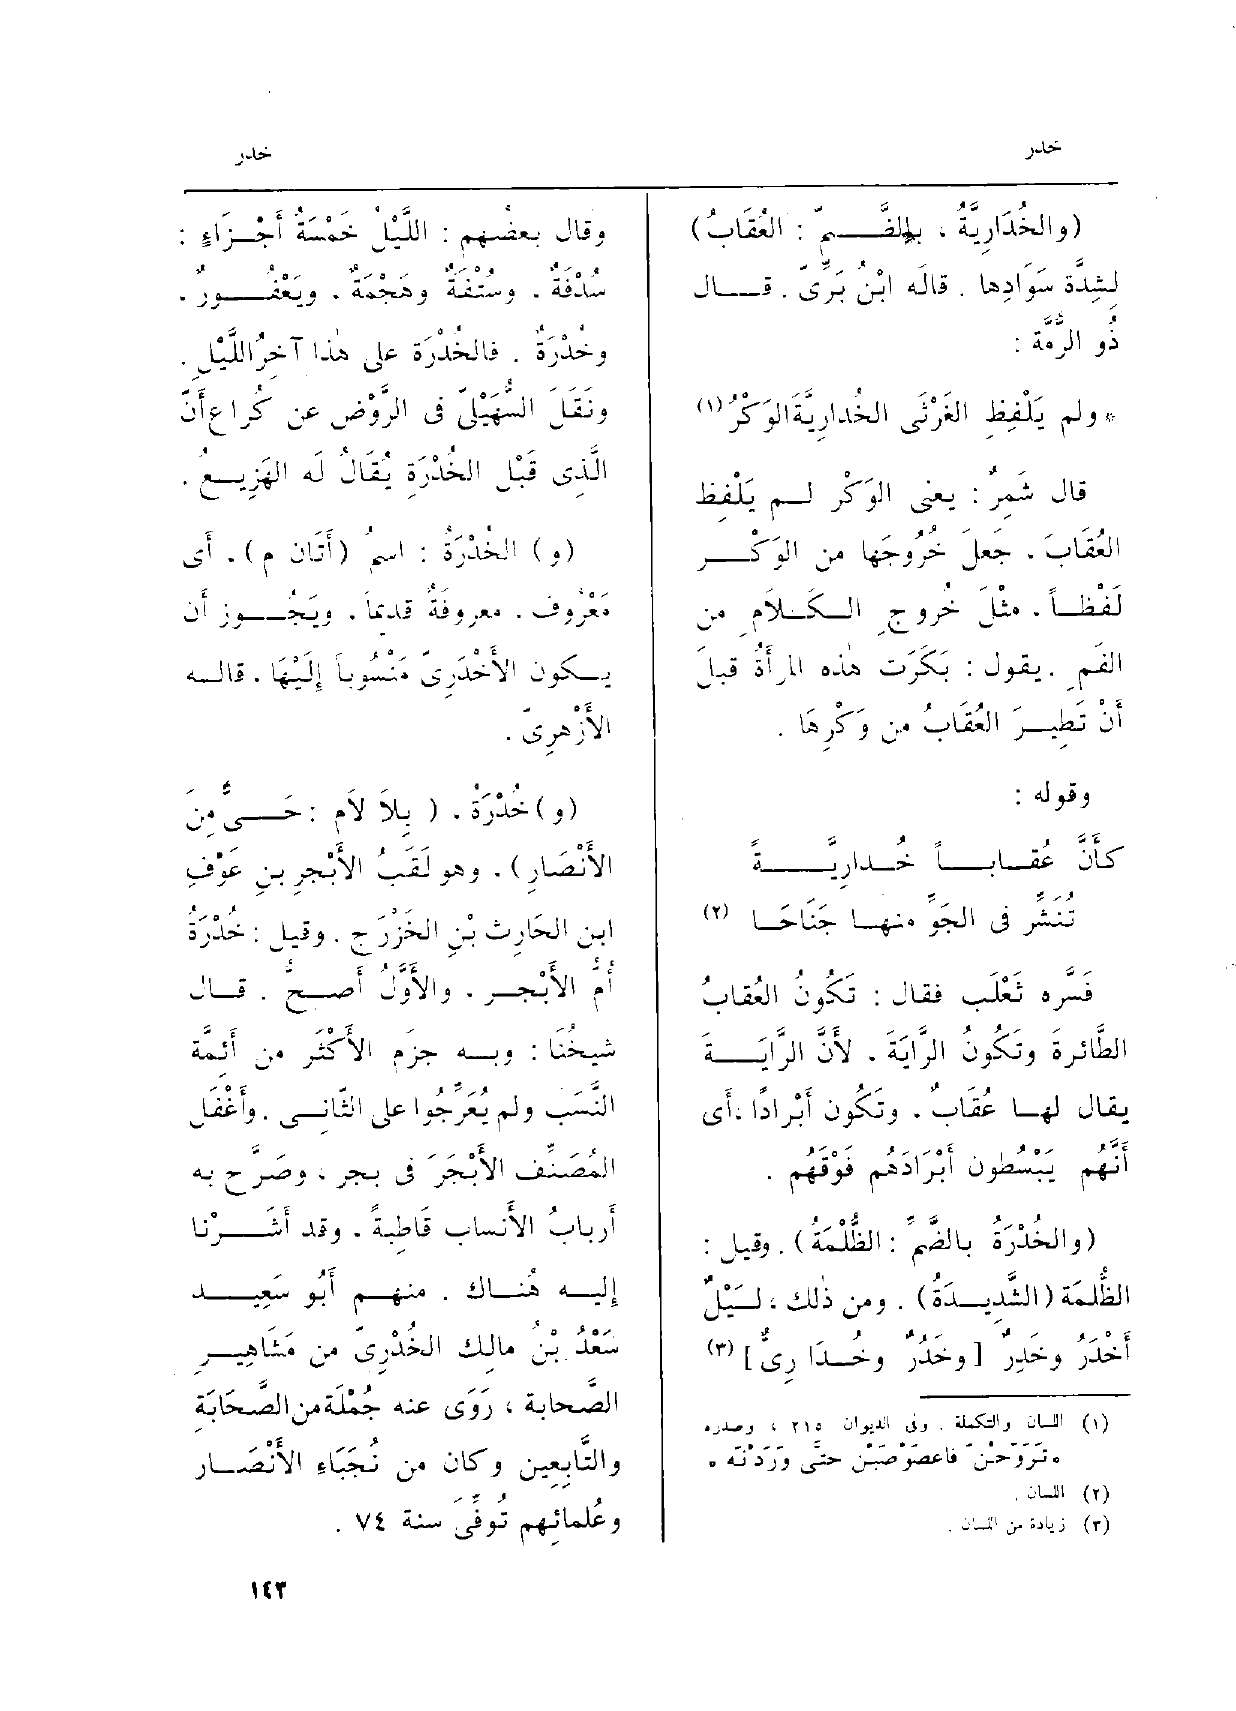 خدر
خدر
(والخُدَارِيَّةُ ، بالضّمّ : العُقَابُ)
لِشِدَّة سَوَادِها . قالَه ابْنُ بَرِّىّ . قال
ذُو الرُّمَّة :
* ولم يَلْفِظِ الغَرْثَى الخُدارِيَّةَ الوَكْرُ (١)
قال شَمِرٌ : يعنى الوَكْر لم يَلْفِظ
العُقَابَ . جَعَلَ خُرُوجَها من الوَكْر
لَفْظاً . مثْلَ خُروجِ الكَلاَمِ من
الفَمِ . يقول : بَكَرَت هٰذه المرأَةُ قبلَ
أَنْ تَطِيرَ العُقَابُ من وَكْرِهَا .
وقوله :
كأَنَّ عُقَاباً خُداريَّةً
تُنَشِّر فى الجَوِّ منها جَنَاحَا (٢)
فَسَّره ثَعْلَب فقال : تَكُونُ العُقابُ
الطَّائرةَ وتَكُونُ الرَّايَةَ . لأَنَّ الرَّايَةَ
يقال لها عُقَابٌ . وتَكون أَبْرادًا ،أَى
أَنَّهُم يَبْسُطون أَبْرَادَهُم فَوْقَهُم .
(والخُدْرَةُ بالضَّمِّ : الظُّلْمَةُ) . وقيل :
الظُّلمة (الشَّدِيدَةُ) . ومن ذٰلك ، لَيْلٌ
أَخْدَرُ وخَدِرٌ [ وخَدُرٌ وخُدَارِىٌّ ] (٣)
(١) اللسان والتكملة . وفى الديوان ٢١٥ ، وصدره
• تَرَوَّحْنَ فاعصَوْصَبْنَ حتَّى وَرَدْنَه •
(٢) اللسان .
(٣) زيادة من اللسان .
وقال بعضُهم : اللَّيْلُ خَمْسَةُ أَجْزَاءٍ :
سُدْفَةٌ . وسُتْفَةٌ وهَجْمَةٌ . ويَعْفُورٌ .
وخُدْرَةٌ . فالخُدْرَة على هٰذا آخِرُ اللَّيْلِ .
ونَقَلَ السُّهَيْلىّ فى الرَّوْض عن كُراع أَنَّ
الَّذِى قَبْل الخُدْرَةِ يُقَالُ لَه الهَزِيعُ .
(و) الخُدْرَةُ : اسمُ (أَتَان م) . أَى
مَعْرُوف . معروفَةٌ قديماً . ويَجُوز أن
يكون الأَخْدَرِىّ مَنْسُوباً إِلَيْهَا . قاله
الأَزْهرِىّ .
(و) خُدْرَةُ . ( بِلاَ لاَم : حَىٌّ مِنَ
الأَنْصَارِ) . وهو لَقَبُ الأَبْجرِ بنِ عَوْفِ
ابن الحَارِث بْنِ الخَزْرَج . وقيل : خُدْرَةُ
أُمُّ الأَبْجر . والأَوَّلُ أَصحُّ . قال
شيخُنَا : وبه جزم الأَكْثَر من أَئِمَّة
النَّسَب ولم يُعَرِّجُوا على الثَّانى . وأَغْفَل
المُصَنِّف الأَبْجَرَ فى بجر ، وصَرَّح به
أَربابُ الأَنساب قَاطِبةً . وقد أَشَرْنا
إليه هُناك . منهم أَبُو سَعِيد
سَعْدُ بْنُ مالك الخُدْرِىّ من مَشَاهِير
الصَّحابة ، رَوَى عنه جُمْلَة من الصَّحَابَة
والتَّابِعِين وكان من نُجَبَاءِ الأَنْصَار
وعُلمائِهم تُوفِّىَ سنة ٧٤ .
١٤٣